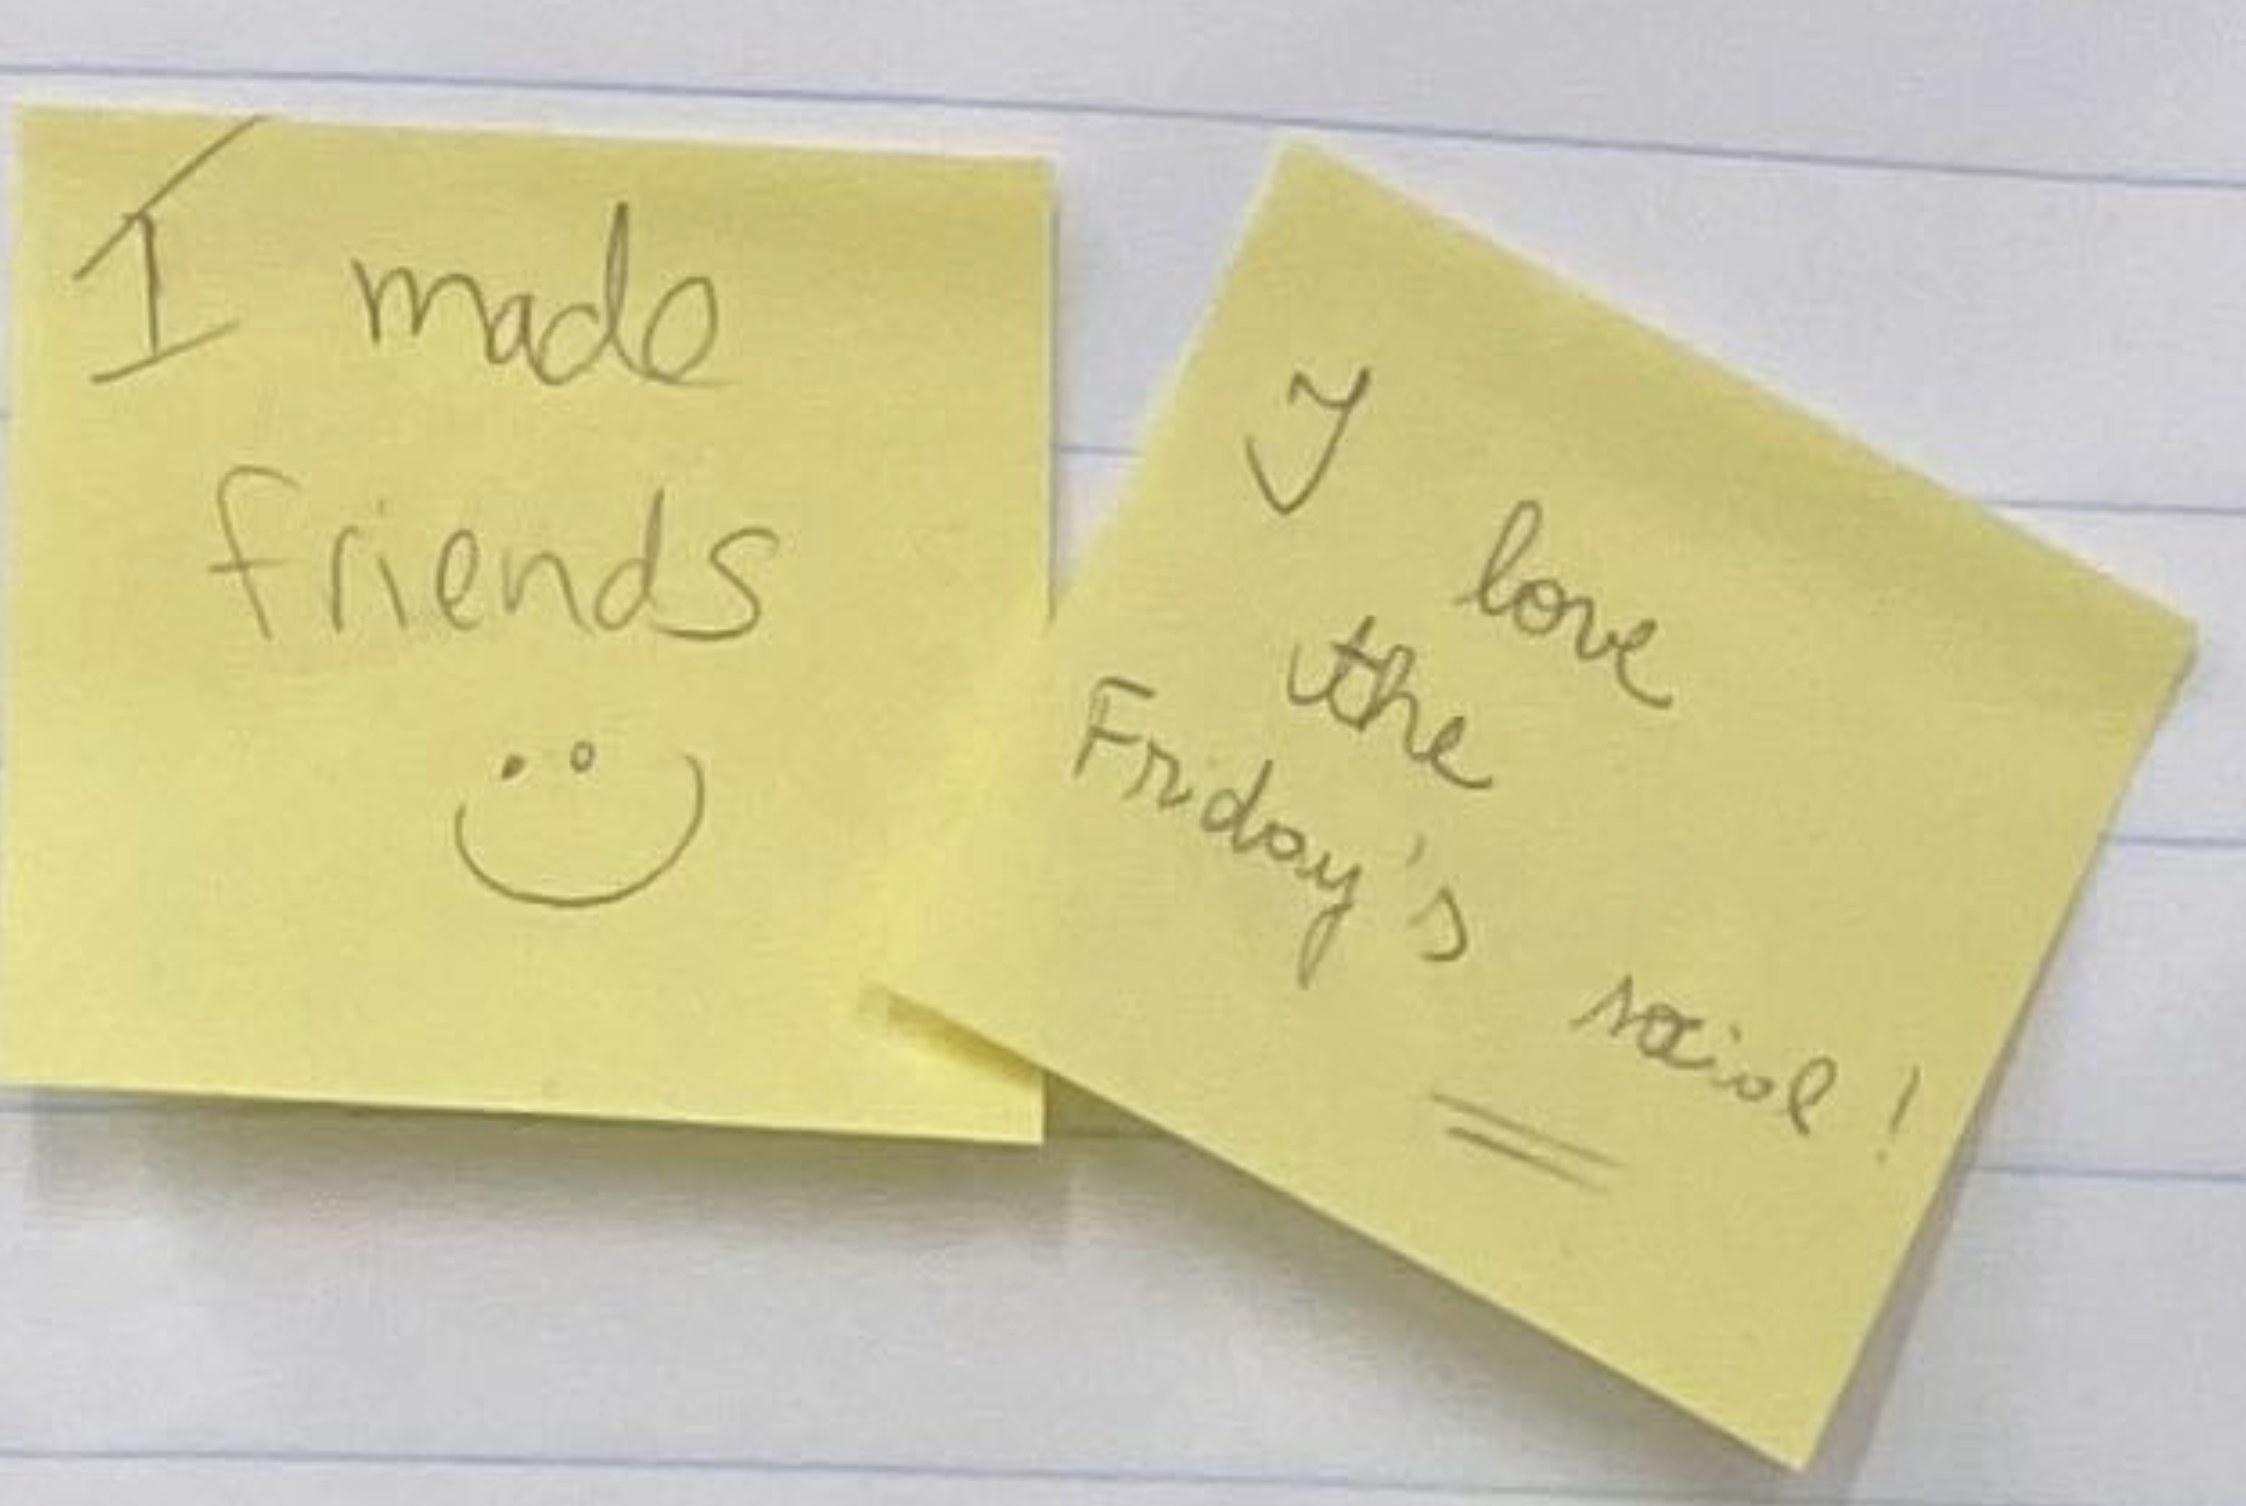 I made
friends
I love
the
Friday's social!